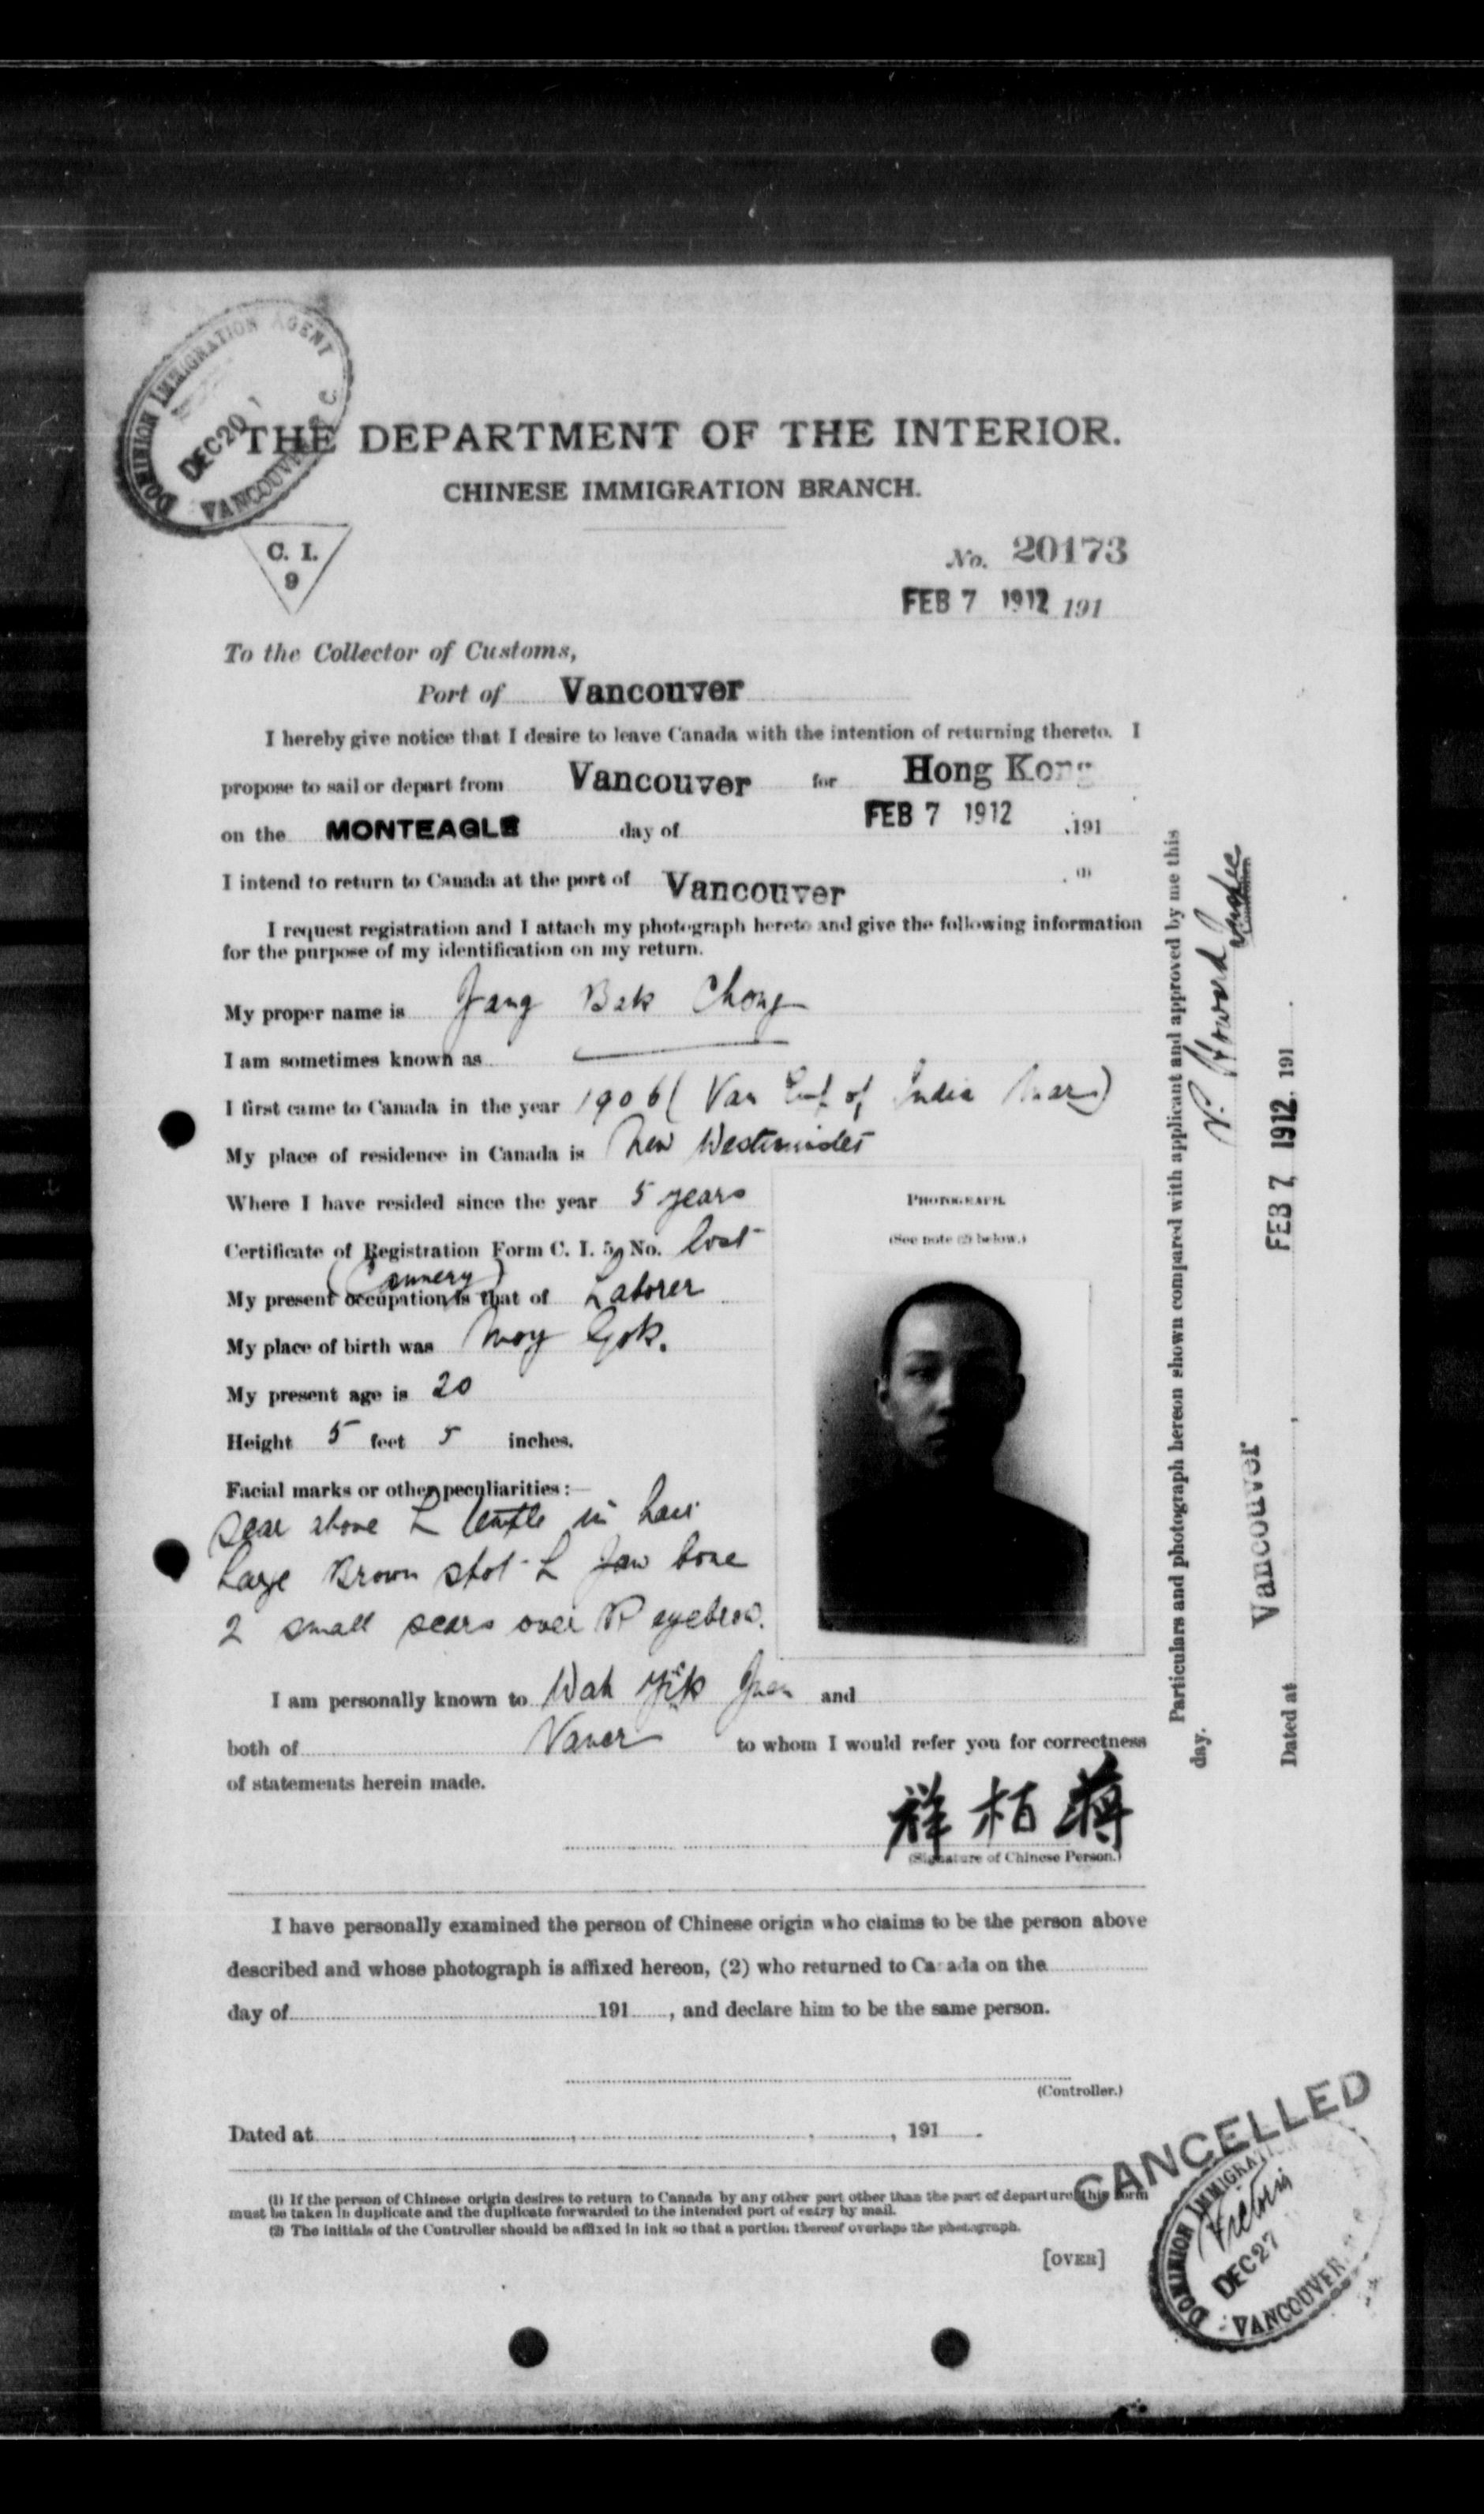 DOMINION IMMIGRATION AGENT
DEC 20
VANCOUVER B C
THE DEPARTMENT OF THE INTERIOR.
CHINESE IMMIGRATION BRANCH.
C. I.
9
No. 20173
FEB 7 1912 191
To the Collector of Customs,
Port of Vancouver
I hereby give notice that I desire to leave Canada with the intention of returning thereto. I
propose to sail or depart from Vancouver for Hong Kong
on the MONTEAGLE day of FEB 7 1912 .191
I intend to return to Canada at the port of Vancouver . (1)
I request registration and I attach my photograph hereto and give the following information
for the purpose of my identification on my return.
My proper name is Jang Bak Chong
I am sometimes known as
I first came to Canada in the year 1906 ( Van Emp of India Mar )
My place of residence in Canada is New Westminster
Where I have resided since the year 5 years
Certificate of Registration Form C. I. 5, No. lost
(Cannery)
My present occupation is that of Laborer
My place of birth was Moy Gok.
My present age is 20
Height 5 feet 5 inches.
Facial marks or other peculiarities :—
Scar above L temple in hair
Large Brown spot L Jaw bone
2 small scars over R eyebrow.
PHOTOGRAPH.
(See note (2) below.)
I am personally known to Wah Yik and
both of Vancr to whom I would refer you for correctness
of statements herein made.
祥柏蔣
(Signature of Chinese Person.)
I have personally examined the person of Chinese origin who claims to be the person above
described and whose photograph is affixed hereon, (2) who returned to Canada on the
day of 191 , and declare him to be the same person.
(Controller.)
Dated at , , 191 .
(1) If the person of Chinese origin desires to return to Canada by any other port other than the port of departure this form
must be taken in duplicate and the duplicate forwarded to the intended port of entry by mail.
(2) The initials of the Controller should be affixed in ink so that a portion thereof overlaps the photograph.
[OVER]
Particulars and photograph hereon shown compared with applicant and approved by me this
day.
Howard
Dated at Vancouver , FEB 7 1912 191 .
CANCELLED
DOMINION IMMIGRATION
Victoria
DEC 27
VANCOUVER